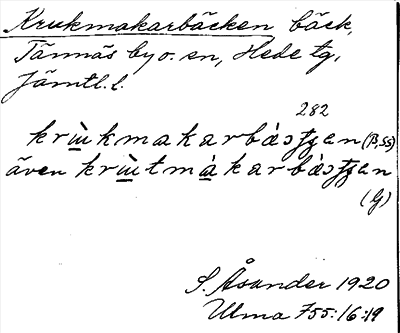 Krukmakarbäcken bäck,
Tännäs by o. sn, Hede tg,
Jämtl. l.
282
krɯ̀kmakarbàɔʈʂen (B, SS)
även krɯ̀tmàkarbàɔʈʂen
(G)
S. Åsander 1920
Ulma 755:16:19